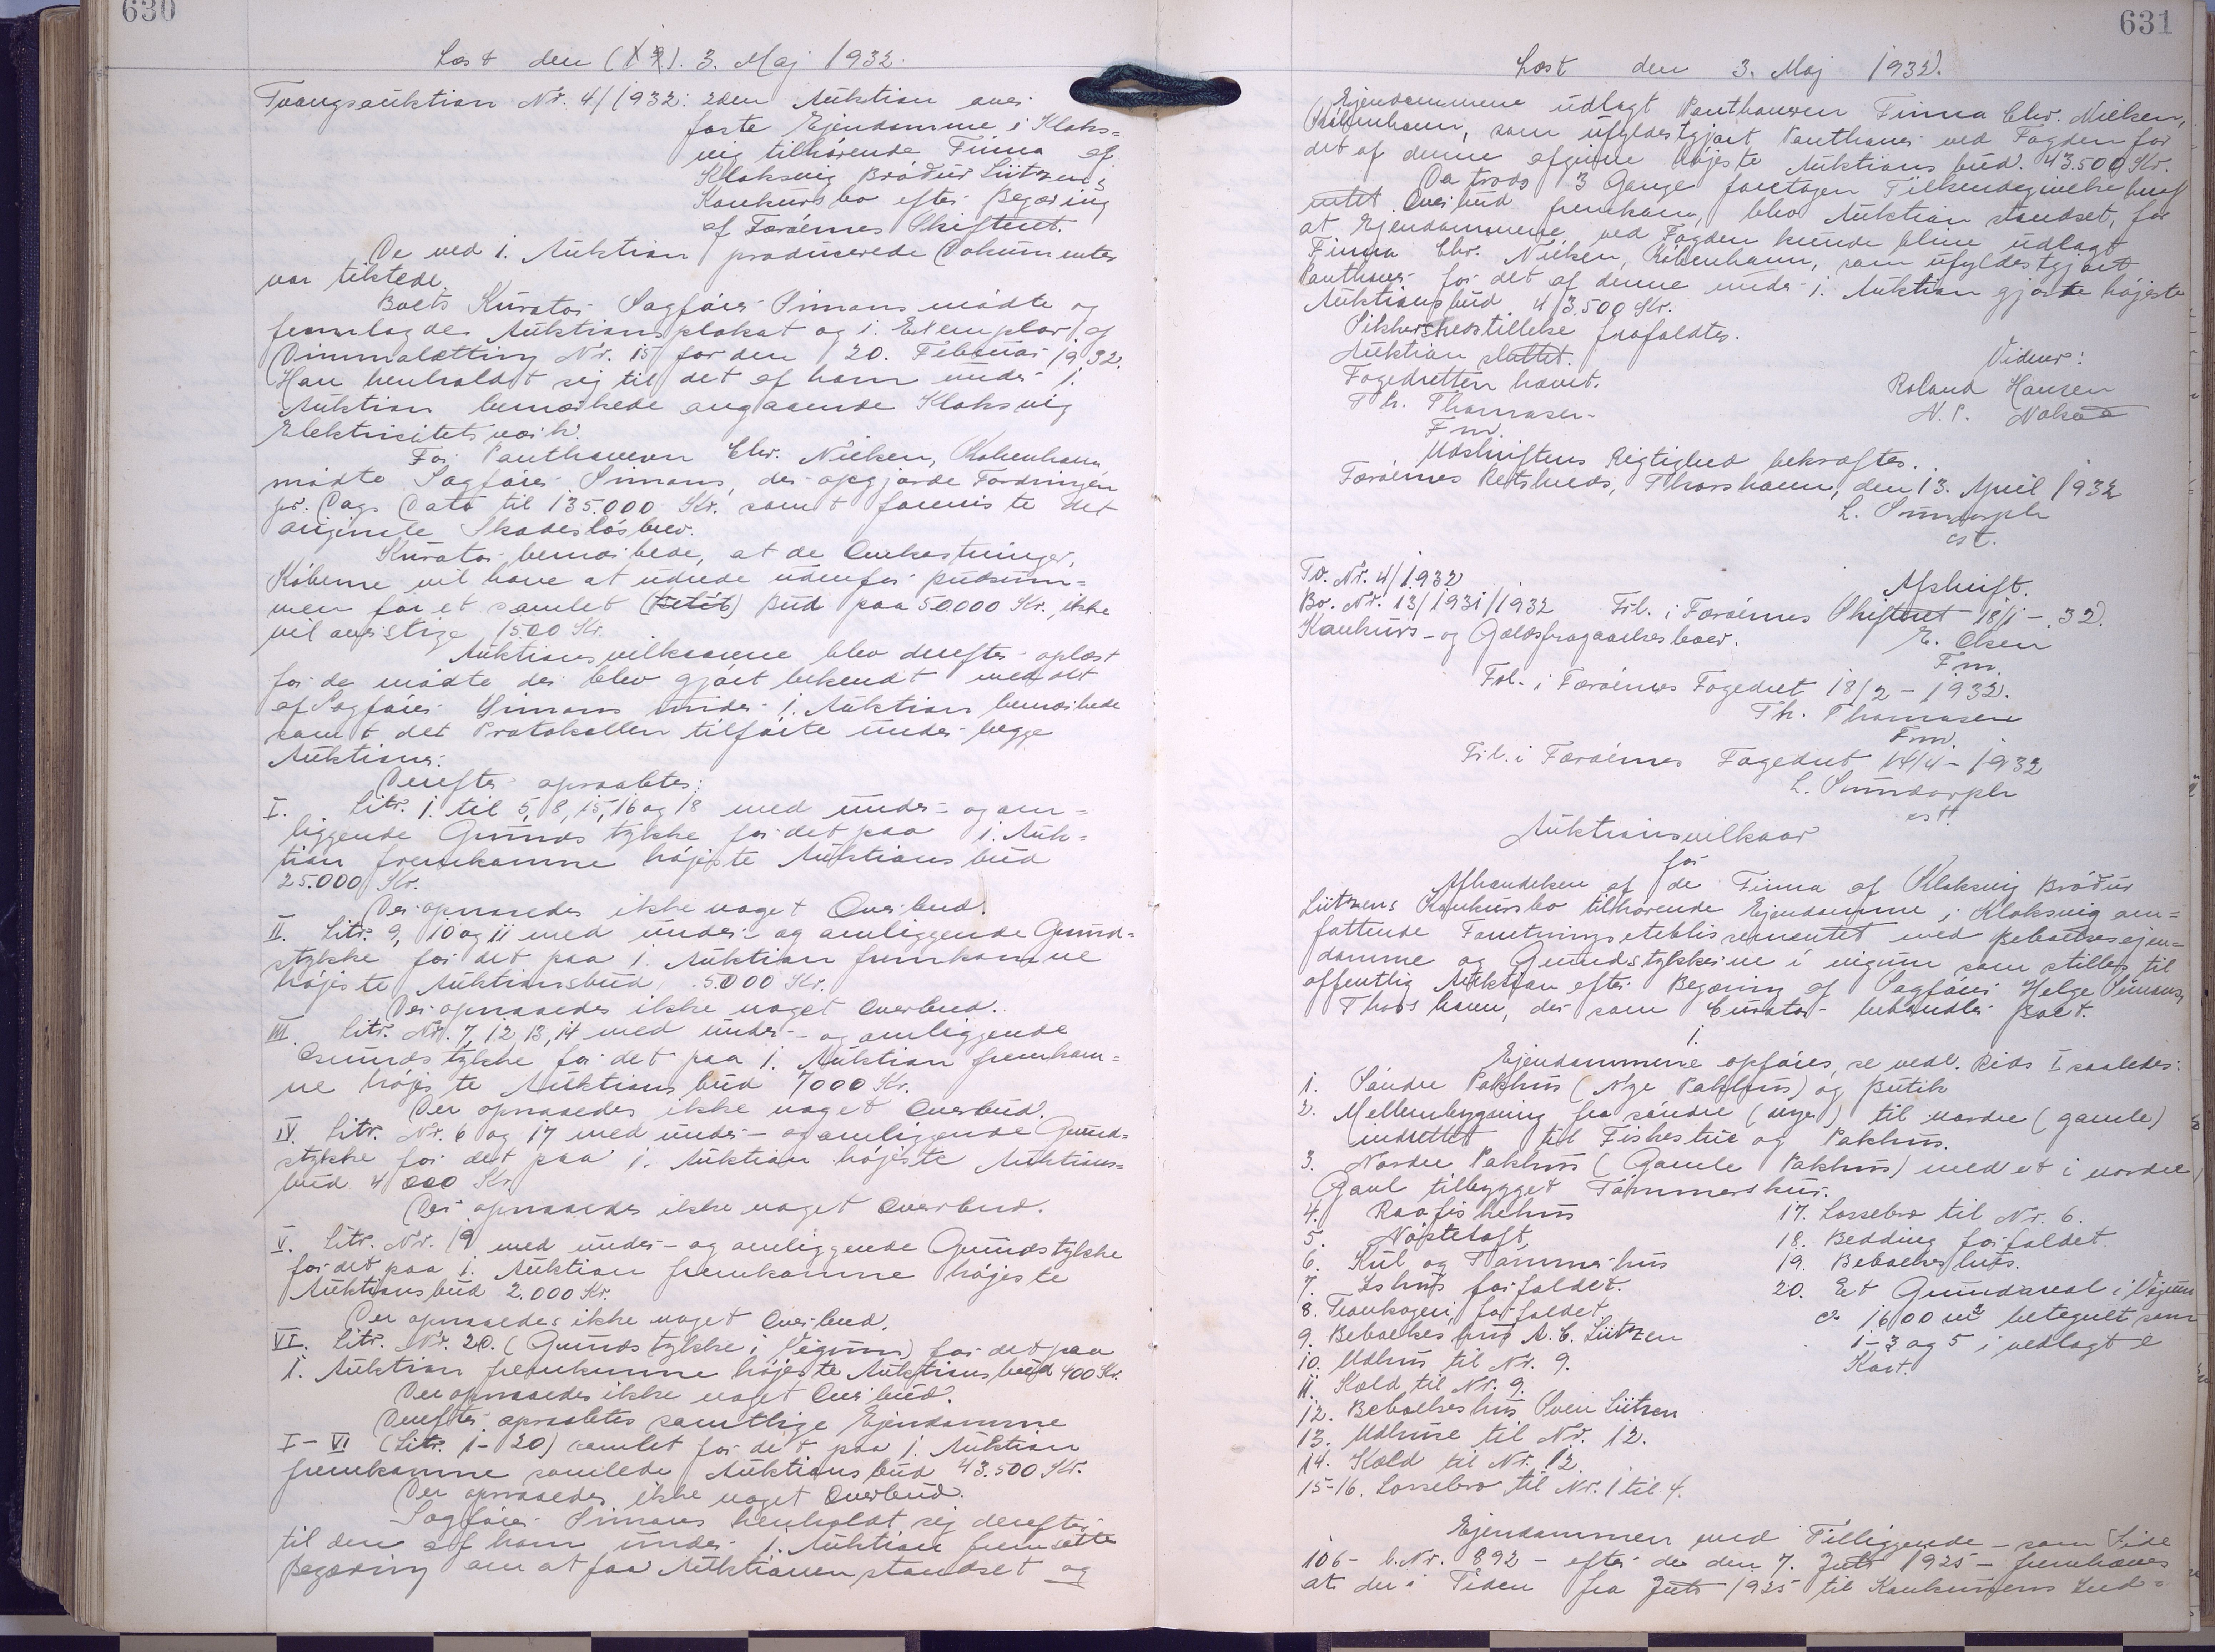 630
Læst den (X X). 3. Maj 1932.
Tvangsauktion Nr. 4/1932: 2den Auktion over
faste Ejendomme i Klaks=
vig tilhørende Firma af
Klaksvig Brødur Lützens
Konkursbo efter Begæring
af Færøernes Skifteret.
De ved 1. Auktion producerede Dokumenter
var tilstede.
Boets Kurator Sagfører Simans mødte og
fremlagdes Auktionsplakat og 1. Exemplar af
Dimmalætting Nr. 15 for den 20. Februar 1932.
Han henholdt sig til det af ham under 1.
Auktion bemærkede angaaende Klaksvig
Elektricitetsværk.
For Panthaveren Chr. Nielsen, København
mødte Sagfører Simans, der opgjorde Fordringen
pr. Dags Dato til 135.000 Kr. samt foreviste det
originale Skadesløsbrev.
Kurator bemærkede, at de Omkostninger,
Køberne vil have at udrede udenfor Budsum=
men for et samlet Bud paa 50.000 Kr., ikke
vil overstige 1500 Kr.
Auktionsvilkaarene blev derefter oplæst
for de mødte der blev gjort bekendt med det
af Sagfører Simans under 1. Auktion bemærkede
samt det Protokollen tilførte under begge
Auktioner.
Derefter opraabtes:
I. Litr. 1 til 5, 8, 15, 16 og 18 med under- og om=
liggende Grundstykke for det paa 1. Auk=
tion fremkomne højeste Auktionsbud
25.000 Kr.
Der opnaaedes ikke noget Overbud.
II. Litr. 9, 10 og 11 med under- og omliggende Grund=
stykke for det paa 1. Auktion fremkomne
højeste Auktionsbud 5.000 Kr.
Der opnaaedes ikke noget Overbud.
III. Litr. Nr. 7, 12, 13, 14 med under- og omliggende
Grundstykke for det paa 1. Auktion fremkom=
ne højeste Auktionsbud 7000 Kr.
Der opnaaedes ikke noget Overbud.
IV. Litr. Nr. 6 og 17 med under- og omliggende Grund=
stykke for det paa 1. Auktion højeste Auktions=
bud 4000 Kr.
Der opnaaedes ikke noget Overbud.
V. Litr. Nr. 19 med under- og omliggende Grundstykke
for det paa 1. Auktion fremkomne højeste
Auktionsbud 2.000 Kr.
Der opnaaedes ikke noget Overbud.
VI. Litr. Nr. 20. (Grundstykke i Vigum) for det paa
1. Auktion fremkomne højeste Auktionsbud 400 Kr.
Der opnaaedes ikke noget Overbud.
Derefter opraabtes samtlige Ejendomme
I-VI (Litr. 1-20) samlet for det paa 1. Auktion
fremkomne samlede Auktionsbud 43.500 Kr.
Der opnaaedes ikke noget Overbud.
Sagfører Simans henholdt sig derefter
til den af ham under 1. Auktion fremsatte
Begæring om at faa Auktionen standset og
631
Læst den 3. Maj 1932.
Ejendommene udlagt Panthaveren Firma Chr. Nielsen,
København, som ufyldestgjort Panthaver ved Fogden for
det af denne afgivne højeste Auktionsbud. 43.500 Kr.
Da trods 3 Gange foretagen Tilkendegivelse heraf
intet Overbud fremkom, blev Auktion standset, for
at Ejendommene ved Fogden kunde blive udlagt
Firma Chr. Nielsen, København, som ufyldestgjort
Panthaver for det af denne under 1. Auktion gjorte højeste
Auktionsbud 43.500 Kr.
Sikkerhedsstillelse frafaldtes.
Auktion sluttet.
Fogedretten hævet.
Th. Thomasen
Fm.
Vidner:
Roland Hansen
N. P. Nolsøe
Udskriftens Rigtighed bekræftes.
Færøernes Retskreds, Thorshavn, den 13. April 1932
L. Sundorph
cst.
Tv. Nr. 4/1932
Afskrift.
Bo. Nr. 13/1931/1932 Frl. i Færøernes Skifteret 18/1 - 32.
Konkurs- og Gældsfragaaelsesboer.
E. Olsen
Fm.
Frl. i Færøernes Fogedret 18/2 - 1932.
Th. Thomasen
Fm.
Frl. i Færøernes Fogedret 14/4 - 1932
L. Sundorph
cst.
Auktionsvilkaar
for
Afhændelsen af de Firma af Klaksvig Brødur
Lützens Konkursbo tilhørende Ejendomme i Klaksvig om=
fattende Forretningsetablissementet med Beboelsesejen=
domme og Grundstykkerne i Vigum som stilles til
offentlig Auktion efter Begæring af Sagfører Helge Simans,
Thorshavn, der som Curator behandler Boet.
1.
Ejendommene opføres, se vedl. Rids I saaledes:
1. Søndre Pakhus (Nye Pakhus) og Butik
2. Mellembygning fra søndre (nye) til nordre (gamle)
indrettet til Fiskestue og Pakhus.
3. Nordre Pakhus (Gamle Pakhus) med et i nordre
Gavl tilbygget Tømmerskur.
4. Raafiskehus
5. Nøsteloft
6. Kul og Tømmerhus
7. Ishus forfaldet.
8. Trankogeri forfaldet
9. Beboelseshus A. C. Lützen
10. Udhus til Nr. 9.
11. Kold til Nr. 9.
12. Beboelseshus Sven Lützen
13. Udhuse til Nr. 12.
14. Kold til Nr. 12.
15-16. Lossebro til Nr. 1 til 4.
17. Lossebro til Nr. 6.
18. Bedding forfaldet.
19. Beboelseshus.
20. Et Grundareal i Vigum
ca 1600 m² betegnet som
1-3 og 5 i vedlagte
Kort.
Ejendommen med Tilliggende - som Side
106 - b. Nr. 892 - efter de den 7. Juli 1925 - fremhæves
at der i Tiden fra Juli 1925 til Konkursens Ind=